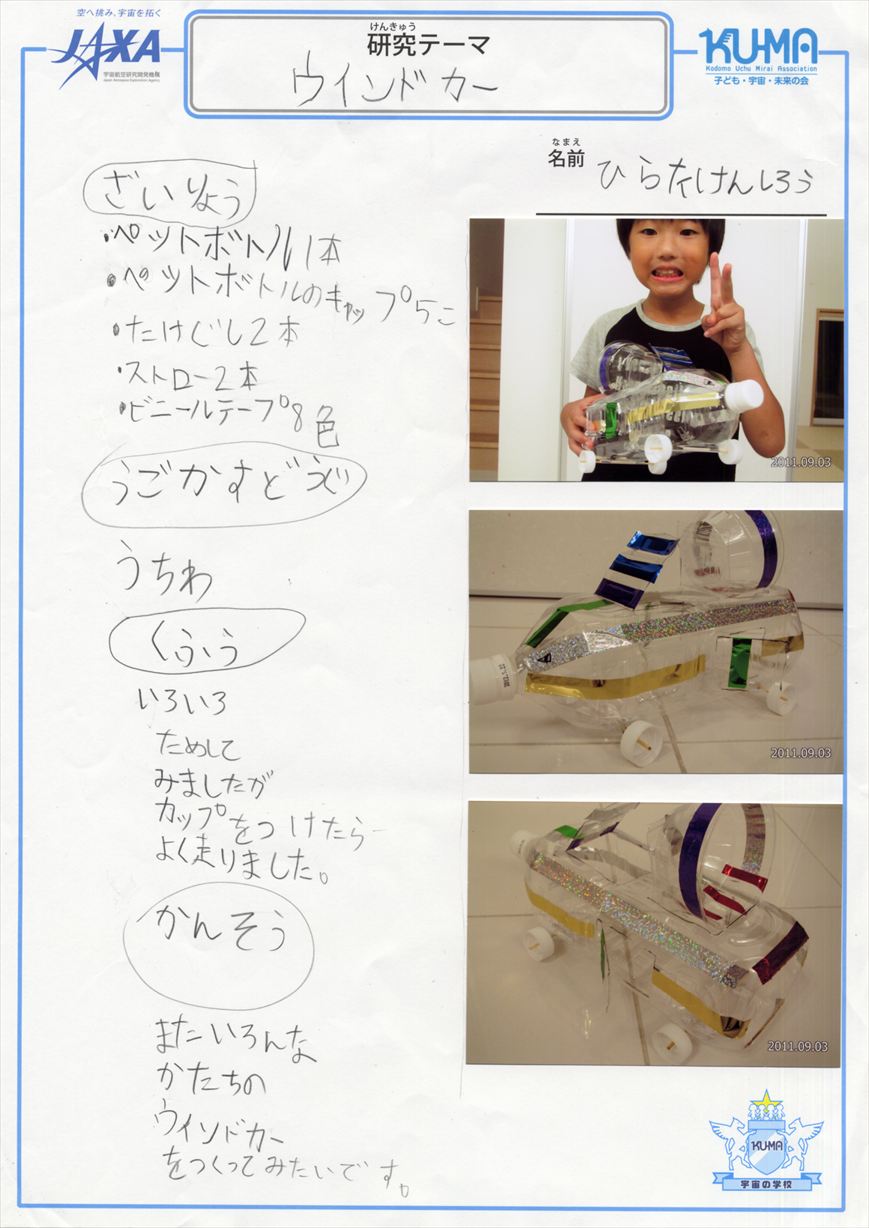 空へ挑み、宇宙を拓く
JAXA
宇宙航空研究開発機構
Japan Aerospace Exploration Agency
けんきゅう
研究テーマ
ウインドカー
KU-MA
Kodomo Uchu Mirai Association
子ども・宇宙・未来の会
なまえ
名前 ひらたけんしろう
ざいりょう
・ペットボトル1本
・ペットボトルのキャップ5こ
・たけぐし2本
・ストロー2本
・ビニールテープ8色
うごかすどうぐ
うちわ
くふう
いろいろ
ためして
みましたが
カップをつけたら
よく走りました。
かんそう
またいろんな
かたちの
ウインドカー
をつくってみたいです。
2011.09.03
2011.09.03
2011.09.03
KU-MA
宇宙の学校